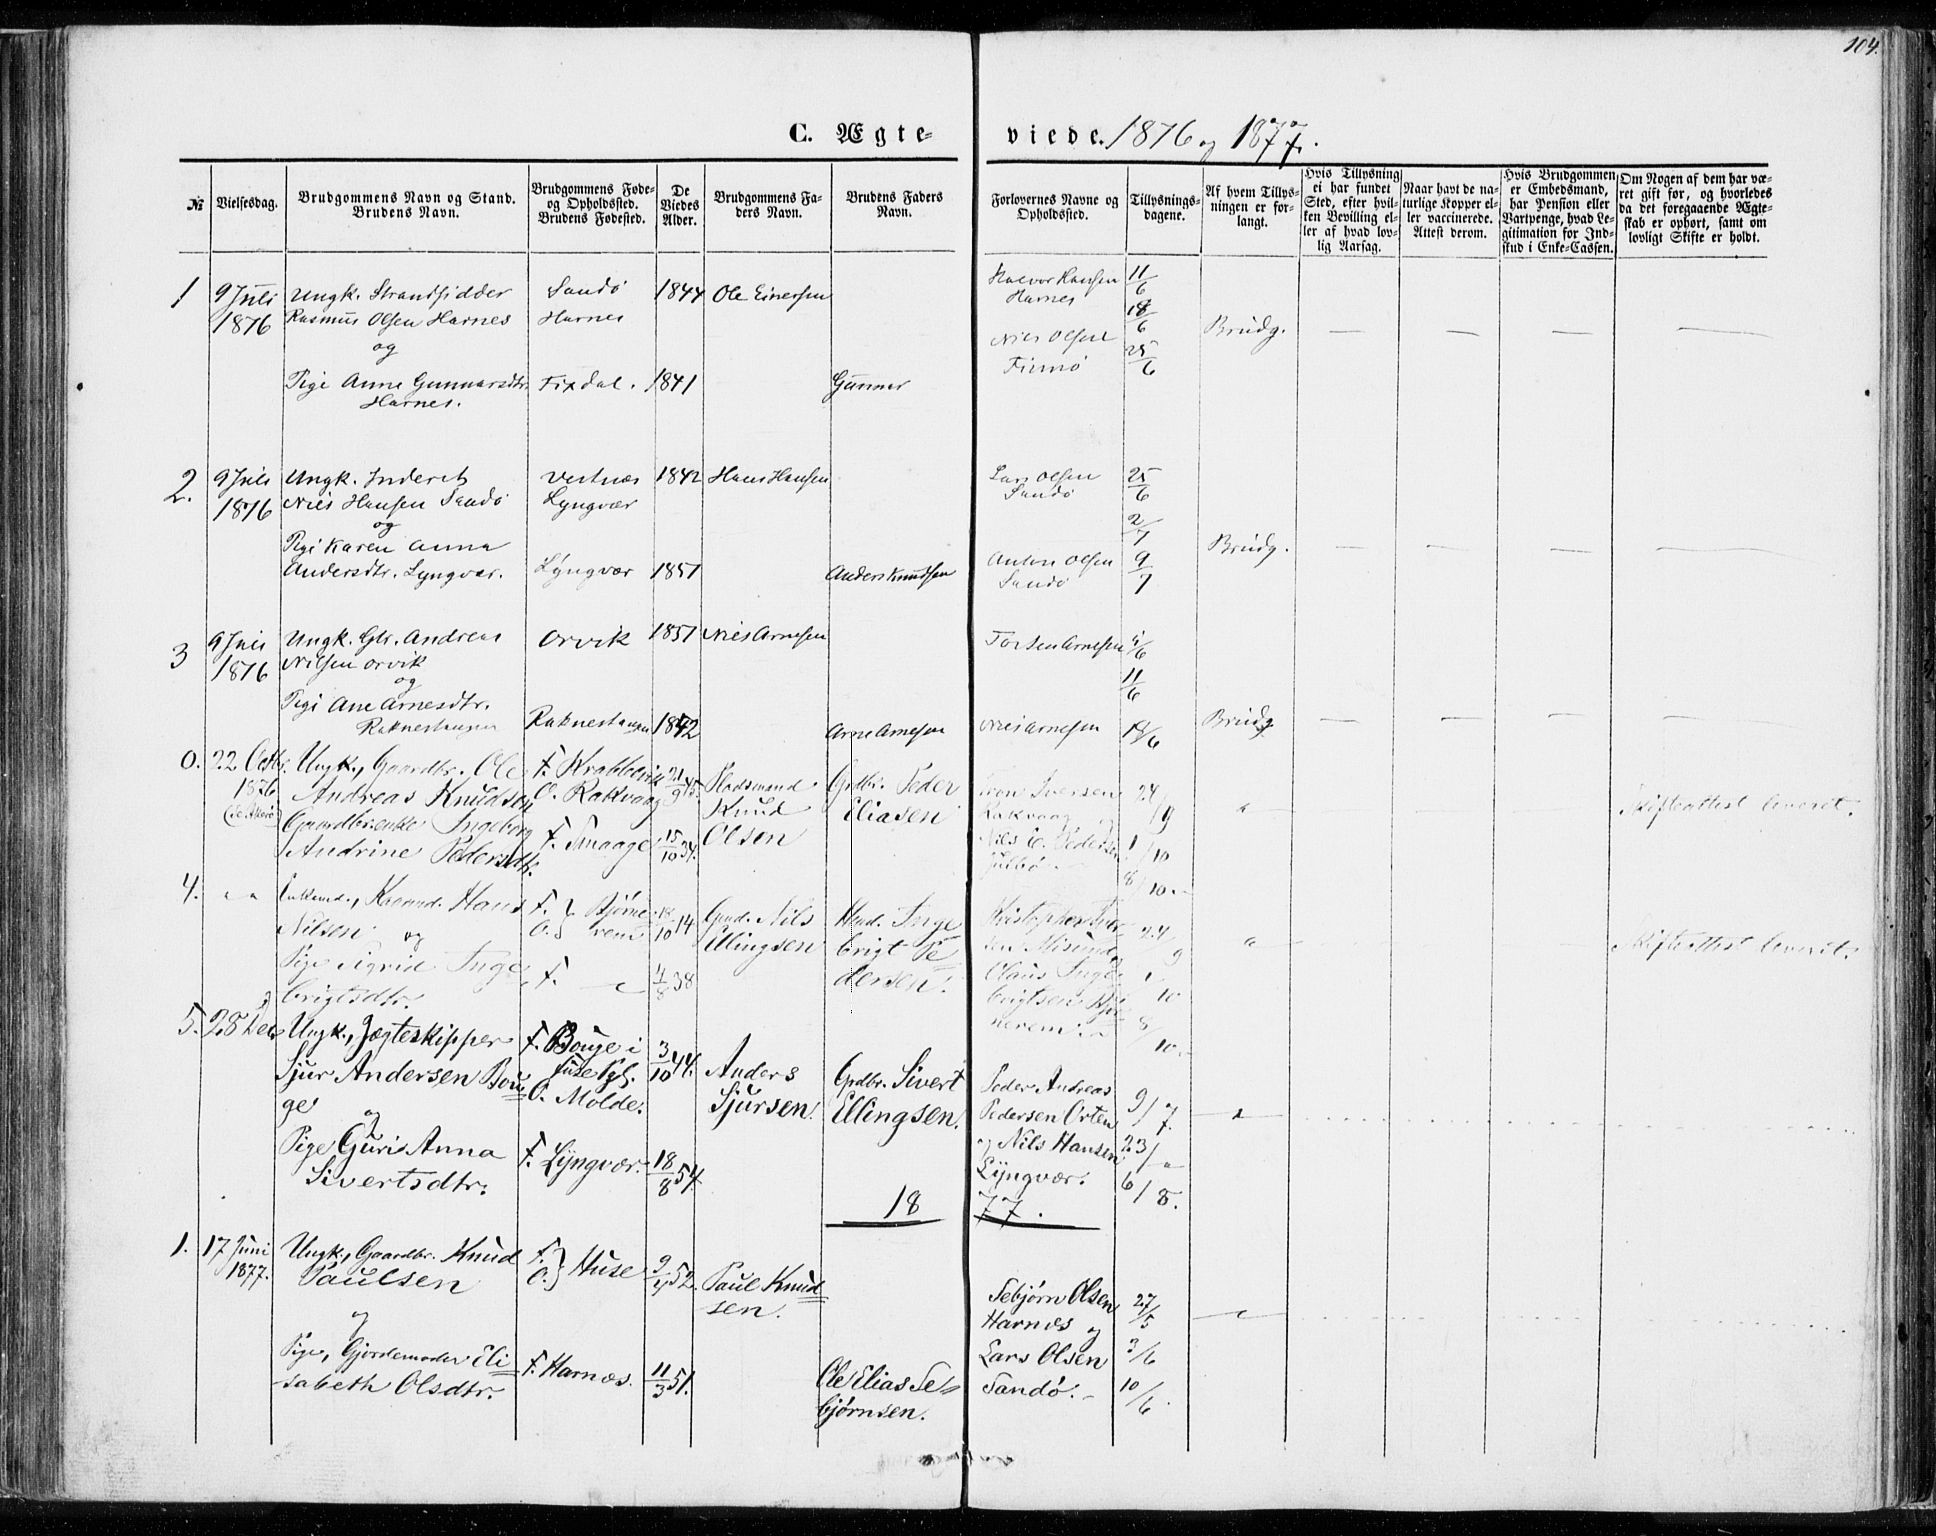 104.
C. Ægte- viede. 1876 og 1877.
№
Vielsesdag.
Brudgommens Navn og Stand.
Brudens Navn.
Brudgommens Føde-
og Opholdssted.
Brudens Fødested.
De
Viedes
Alder.
Brudgommens Fa-
ders Navn.
Brudens Faders
Navn.
Forlovernes Navne og
Opholdssted.
Tillysnings-
dagene.
Af hvem Tillys-
ningen er for-
langt.
Hvis Tillysning
ei har fundet
Sted, efter hvil-
ken Bevilling el-
ler af hvad lov-
lig Aarsag.
Naar havt de na-
turlige Kopper el-
ler vaccinerede.
Attest derom.
Hvis Brudgommen
er Embedsmand,
har Pension eller
Vartpenge, hvad Le-
gitimation for Ind-
skud i Enke-Cassen.
Om Nogen af dem har væ-
ret gift før, og hvorledes
da det foregaaende Ægte-
skab er ophørt, samt om
lovligt Skifte er holdt.
1
9 Juli
1876
Ungk. Strandsidder
Rasmus Olsen Harnes
og
Pige Anne Gunnarsdtr.
Harnes.
Sandø
Harnes
Fixdal.
1844
1841
Ole Einersen
Gunner
Halvor Hansen
Harnes
Niels Olsen
Finnø
11/6
18/6
25/6
Brudg.
— — — —
2.
9 Juli
1876
Ungk. Inderst
Niels Hansen Sandø
og
Pige Karen Anna
Andersdtr. Lyngvær.
Vestnæs
Lyngvær
Lyngvær
1842
1851
Hans Hansen
Anders Knudsen
Lars Olsen
Sandø
Anton Olsen
Sandø
25/6
2/7
9/7
Brudg.
— — — —
3
9 Juli
1876
Ungk. Gbr. Andreas
Nilsen Orvik
og
Pige Ane Arnesdtr.
Raknestangen
Orvik
Raknestangen
1851
1842
Niels Arnesen
Arne Arnesen
Torsten Arnesen
Niels Arnesen
4/6
11/6
18/6
Brudg.
— — — —
0.
22 Octbr.
1876
(i Akerø)
Ungk., Gaardbr. Ole
Andreas Knudsen
Gaardbr.enke Ingeborg
Andrine Pedersdtr.
F. Krabbevik
O. Rakvaag
F. Smaage
21/9 45.
15/10 34.
Pladsmand
Knud
Olsen
Grdbr. Peder
Eliasen
Tron Iversen
Rakvaag og
Nils E. Pedersen
Julbø
24/9
1/10
8/10.
"
Skifteattest leveret.
4.
" "
Enkemd., Kaarmd. Hans
Nilsen og
Pige Sigrid Inge
brigtsdtr.
F. } Bjørne
O. } rem
F. "
18/10 14
4/8 38
Gmd. Nils
Ellingsen
Hmd. Inge
brigt Pe
dersen.
Kristopher Iver
sen Misund
Claus Inge
brigtsen Bjør
nerem.
24/9
1/10
8/10.
"
Skifteattest leveret.
5.
28 Dec.
Ungk., Jægteskipper
Sjur Andersen Bou
ge
og
Pige Guri Anna
Sivertsdtr.
F. Bouge i
Fuse Pgl.
O. Molde.
F. Lyngvær.
3/10 44.
18/8 54.
Anders
Sjursen.
Grdbr. Sivert
Ellingsen.
Peder Andreas
Pedersen Orten
og Nils Hansen
Lyngvær.
9/7.
23/"
6/8.
"
1877.
1.
17 Juni
1877.
Ungk., Gaardbr. Knud
Paulsen
og
Pige, Gjordemoder Eli
sabeth Olsdtr.
F. } Huse
O. }
F. Harnæs.
52.
11/3 51.
Paul Knud
sen.
Ole Elias Se-
bjørnsen.
Sebjørn Olsen
Harnæs og
Lars Olsen
Sandø.
27/5
3/6
10/6.
"